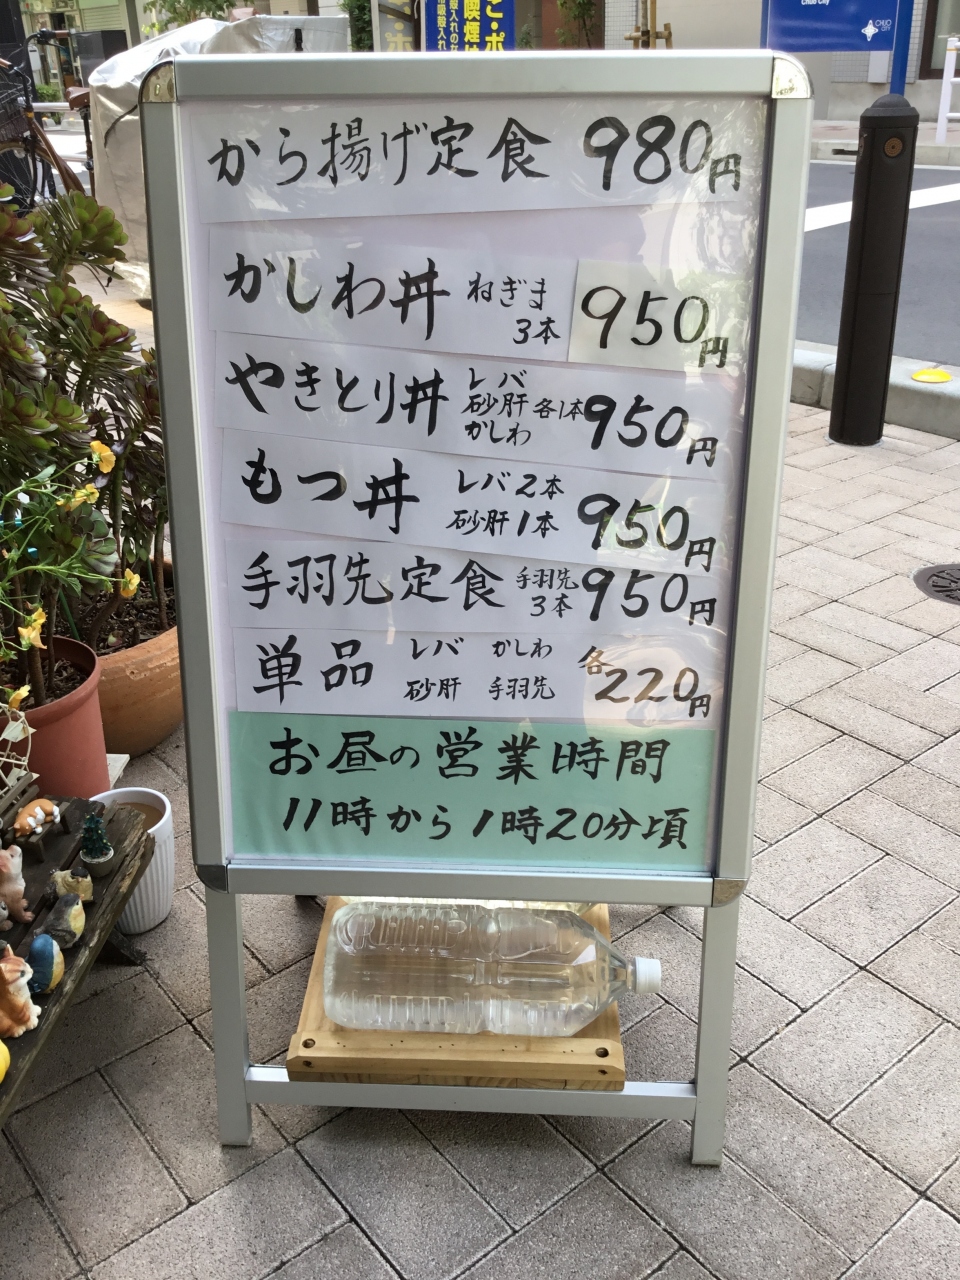 から揚げ定食 980円
かしわ丼 ねぎま 3本 950円
やきとり丼 レバ 砂肝 かしわ 各1本 950円
もつ丼 レバ2本 砂肝1本 950円
手羽先定食 手羽先 3本 950円
単品 レバ かしわ 砂肝 手羽先 各220円
お昼の営業時間
11時から1時20分頃
Chuo City
CHUO CITY